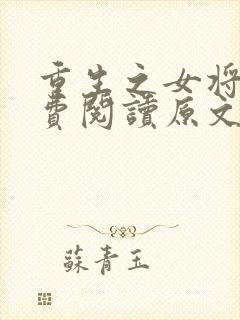 重生之女將
費閱讀原文
蘇青玉